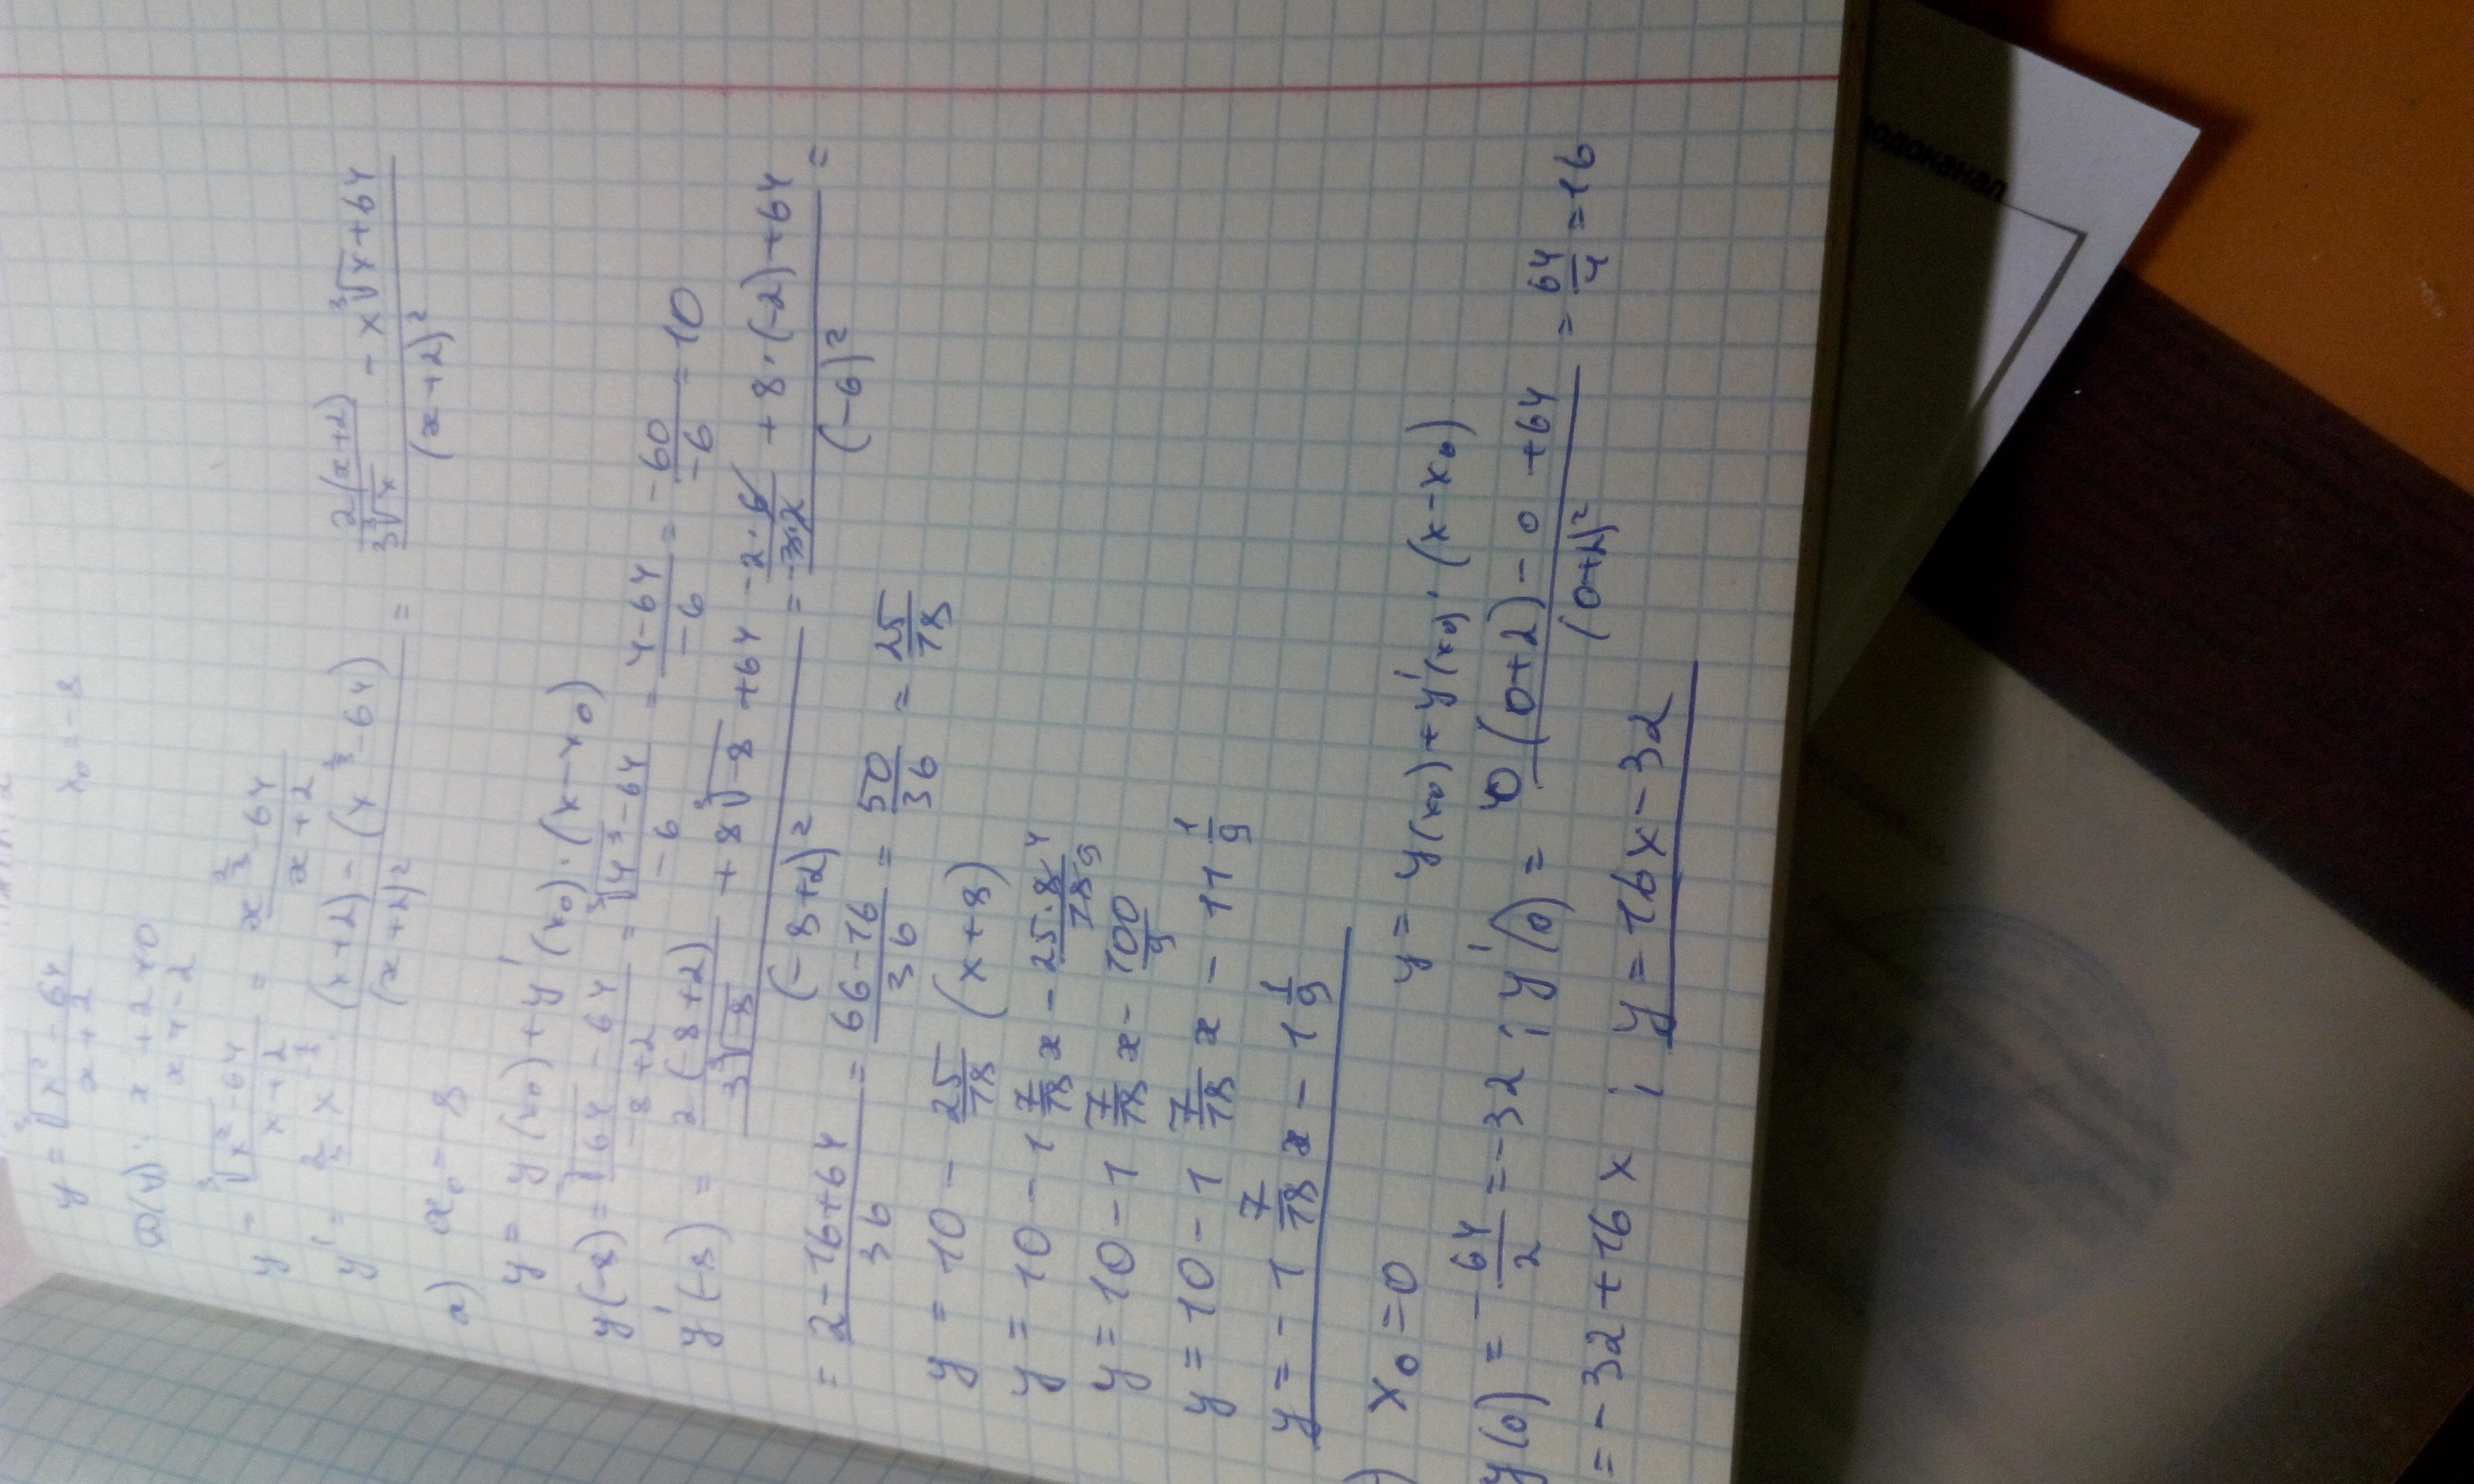 y = ∛x² - 64 / x + 2     x₀ = -8
D(y): x + 2 ≠ 0
x ≠ -2
y = (∛x² - 64)/(x + 2) = (x^(2/3) - 64)/(x + 2)
y' = (2/3 x^(-1/3) · (x + 2) - (x^(2/3) - 64))/(x + 2)² = (2(x + 2)/(3∛x) - x∛x + 64)/(x + 2)²
a) x₀ = -8
y = y(x₀) + y'(x₀) · (x - x₀)
y(-8) = (∛64 - 64)/(-8 + 2) = (∛4³ - 64)/(-6) = (4 - 64)/(-6) = -60/-6 = 10
y'(-8) = (2(-8 + 2)/(3∛-8) + 8∛-8 + 64)/(-8 + 2)² = (-2·6/(-3·2) + 8·(-2) + 64)/(-6)² =
= (2 - 16 + 64)/36 = (66 - 16)/36 = 50/36 = 25/18
y = 10 - 25/18 (x + 8)
y = 10 - 1 7/18 x - 25·8 4/18 9
y = 10 - 1 7/18 x - 100/9
y = 10 - 1 7/18 x - 11 1/9
y = -1 7/18 x - 1 1/9
) x₀ = 0     y = y(x₀) + y'(x₀) · (x - x₀)
y(0) = -64/2 = -32 ; y'(0) = (0(0 + 2) - 0 + 64)/(0 + 2)² = 64/4 = 16
= -32 + 16x ; y = 16x - 32
водоканал